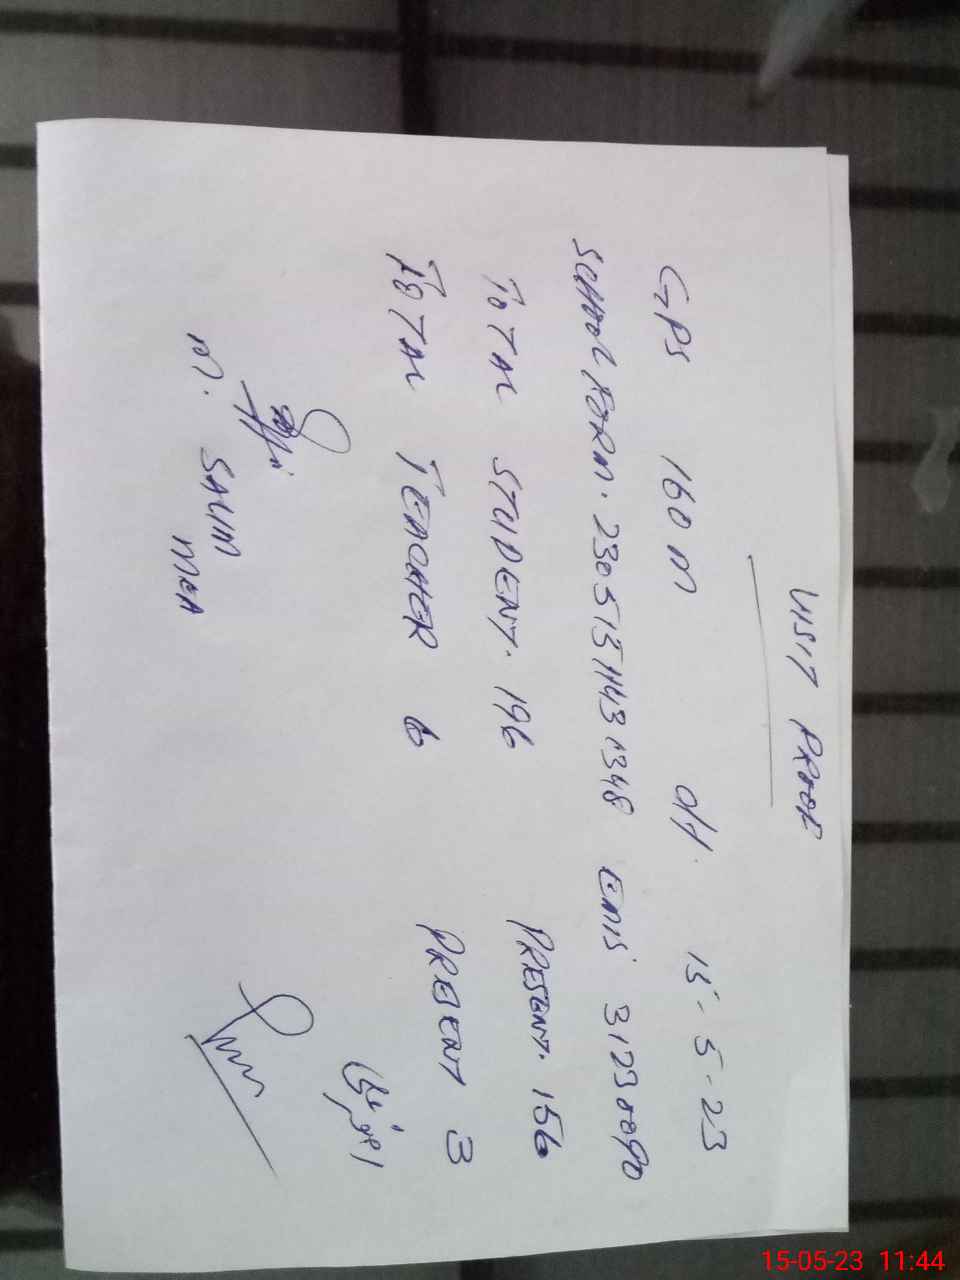 VISIT PROOF
GPS 160 M dt. 15-5-23
SCHOOL FORM. EMIS
TOTAL STUDENT. 196 PRESENT. 156
TOTAL TEACHER 6 PRESENT 3
M. SALIM
MEA
15-05-23 11:44